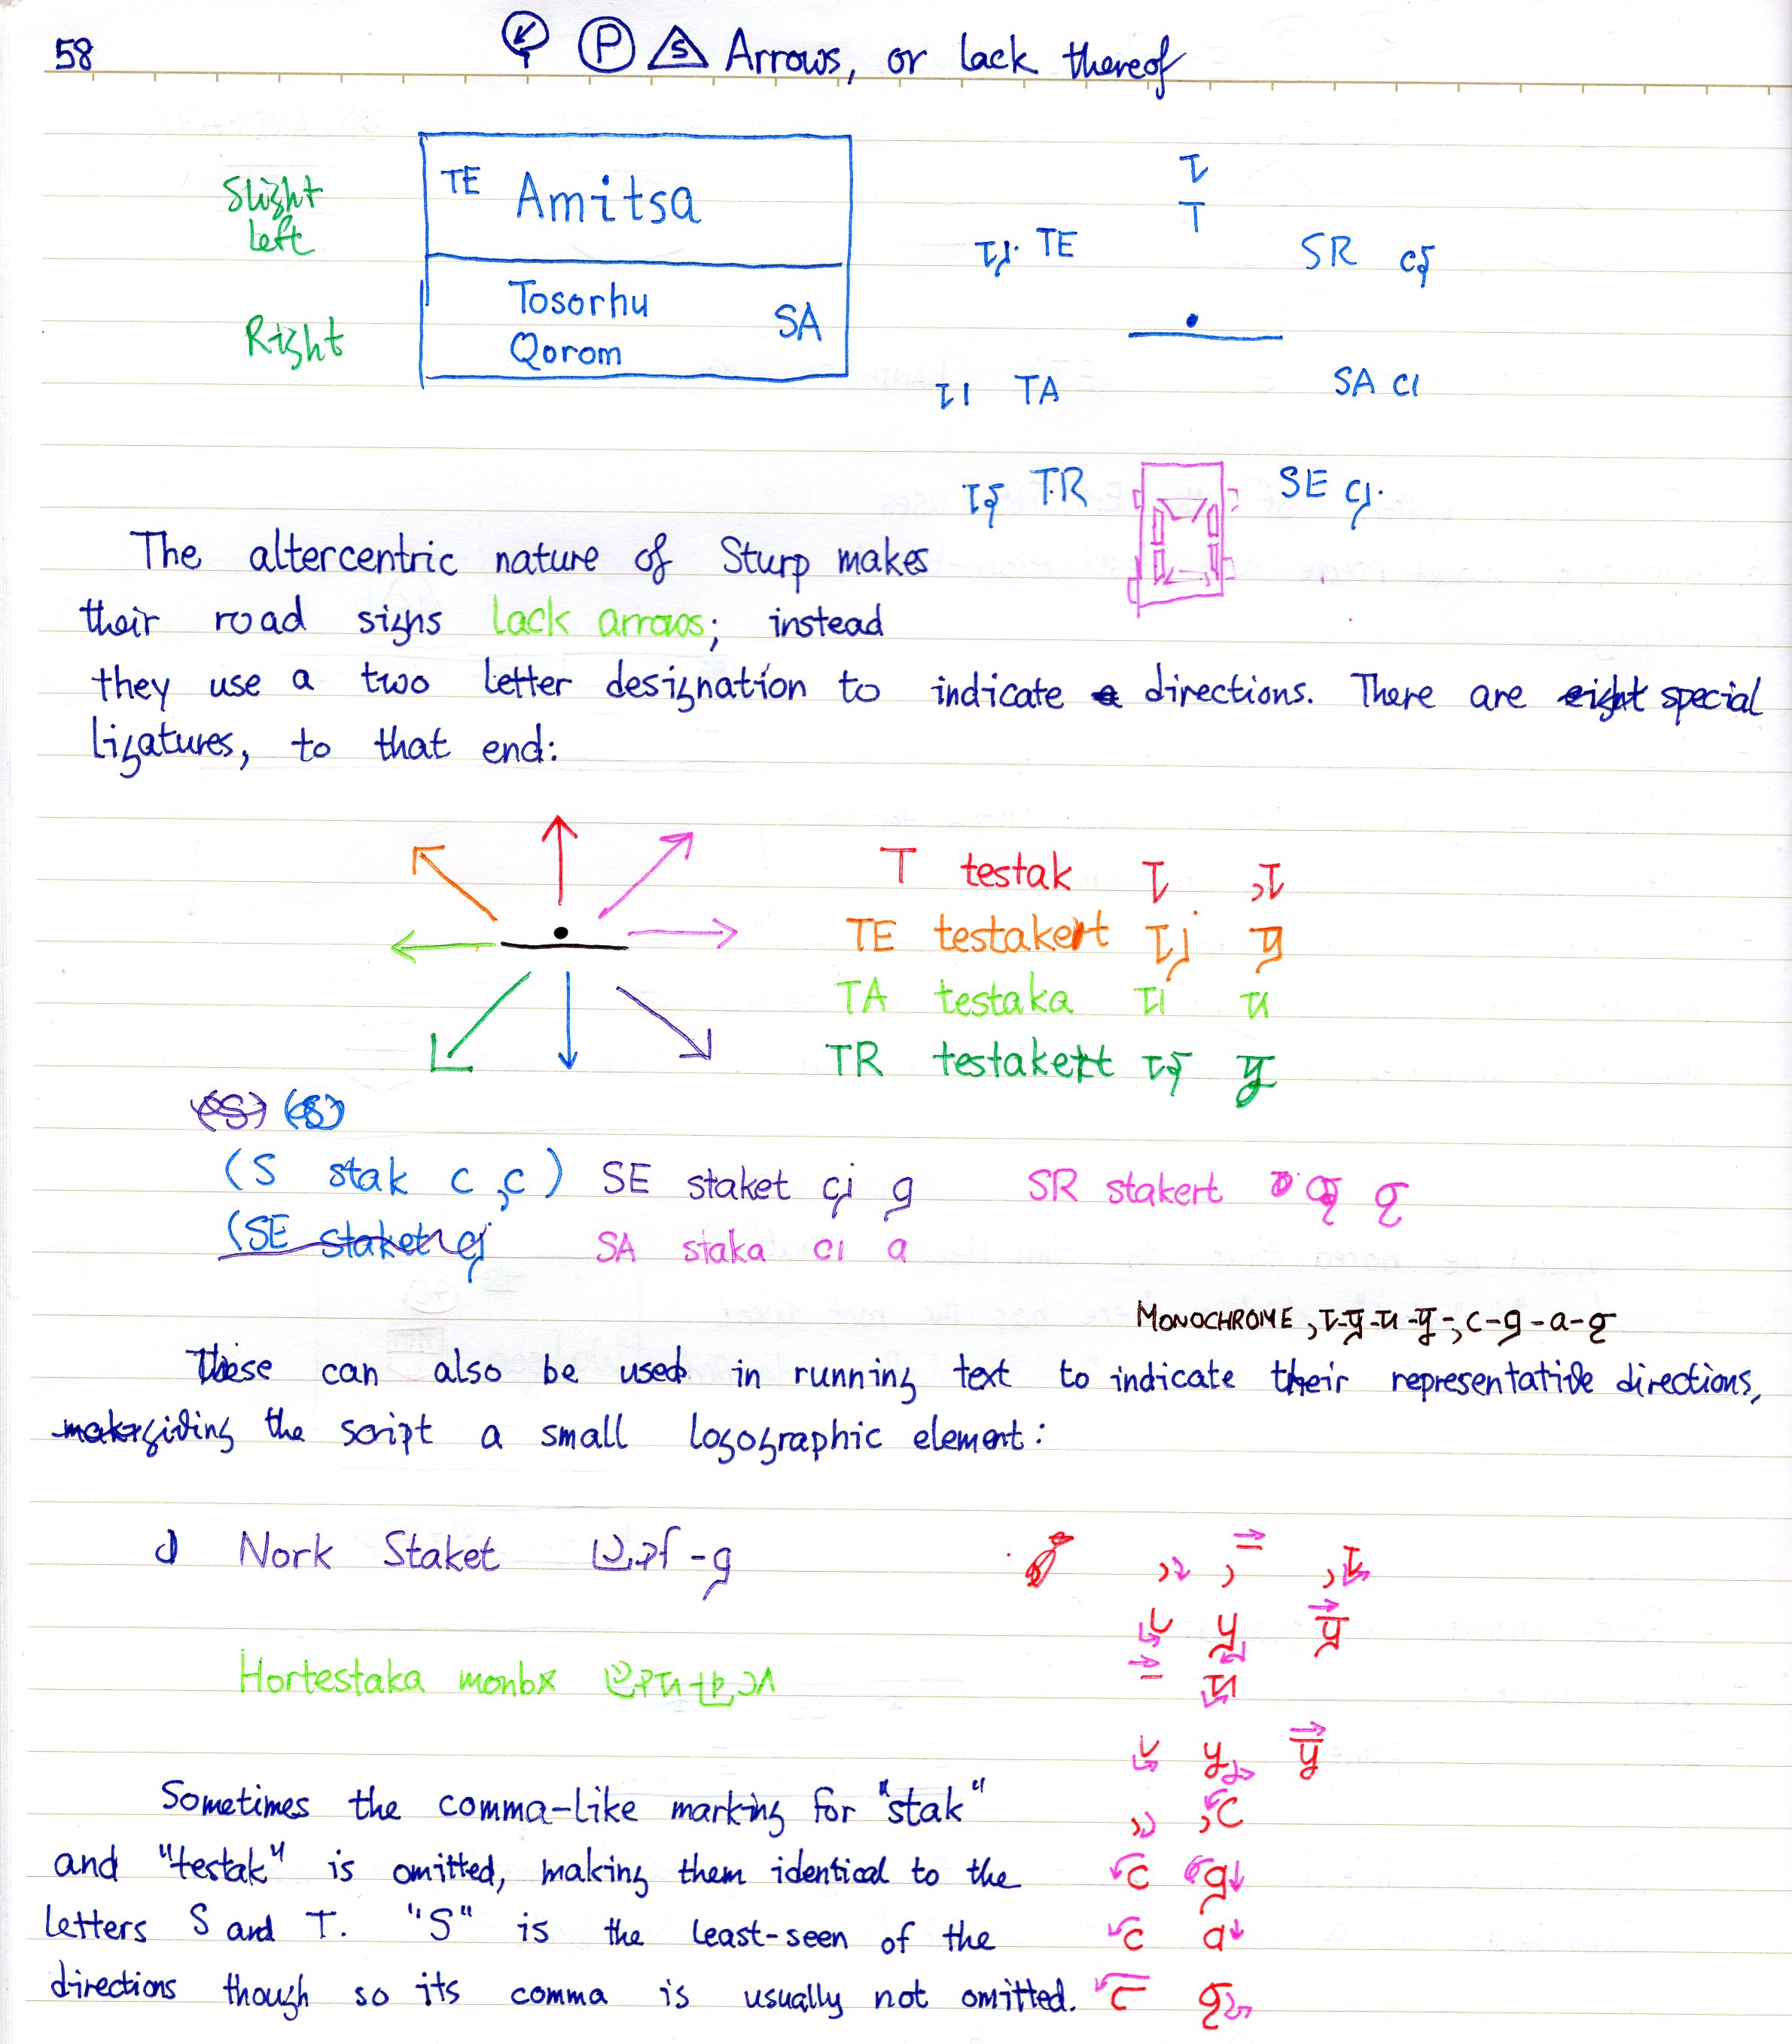 58
P S Arrows, or lack thereof
Slight
left
TE Amitsa
Right
Tosorhu
Qorom
SA
T
TE
SR
TA
SA
TR
SE
The altercentric nature of Sturp makes
their road signs lack arrows; instead
they use a two letter designation to indicate directions. There are eight special
ligatures, to that end:
T testak
TE testakert
TA testaka
TR testakert
(S stak c ,c) SE staket SR stakert
(SE staket SA staka
MONOCHROME
These can also be used in running text to indicate their representative directions,
giving the script a small logographic element:
Nork Staket
Hortestaka monbx
Sometimes the comma-like marking for "stak"
and "testak" is omitted, making them identical to the
letters S and T. "S" is the least-seen of the
directions though so its comma is usually not omitted.